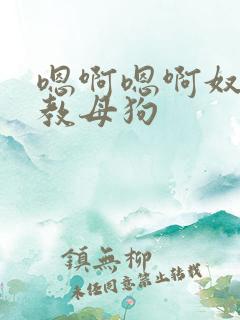 嗯啊嗯啊奴
教母狗
鎮無柳
未经同意禁止转载